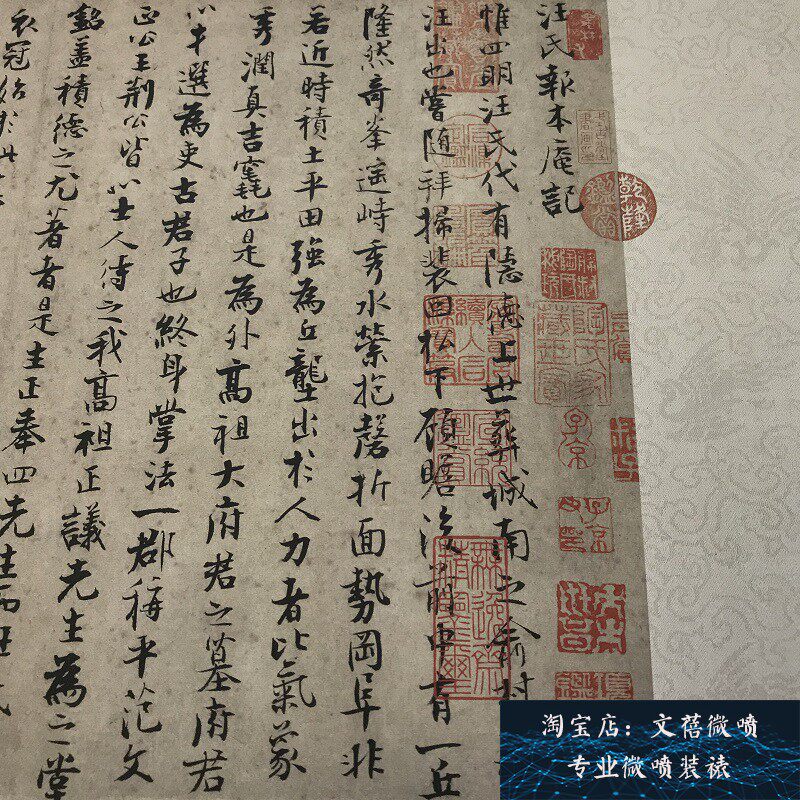 汪氏報本庵記
惟四明汪氏代有隱德上世葬城南之俞村
汪出也嘗隨拜掃裴回松下顧瞻後前中有一丘
隆然奇峯遥峙秀水縈抱磬折面勢岡阜非
若近時積土平田強為丘壟出於人力者比氣象
秀潤真吉窀也是為外高祖大府君之墓府君
以才選為吏古君子也終身掌法一郡稱平范文
正公王荆公皆以士人待之我高祖正議先生為之堂
銘盖積德之尤著者是生正奉四先生而世
衣冠始
乾隆鑑賞
子京
淘宝店：文蓓微喷
专业微喷装裱